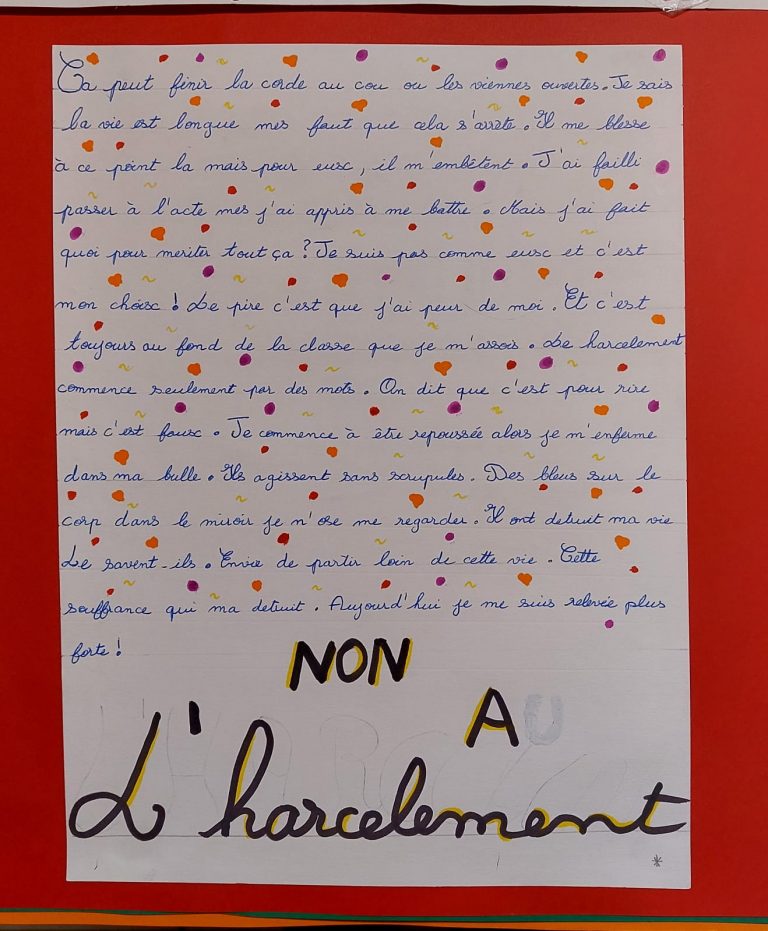 Ca peut finir la corde au cou ou les viennes ouvertes. Je sais
la vie est longue mes faut que cela s'arrete. Il me blesse
à ce point la mais pour eusc, il m'embêtent. J'ai failli
passer à l'acte mes j'ai appris à me battre. Mais j'ai fait
quoi pour meriter tout ça? Je suis pas comme eusc et c'est
mon choisc! Le pire c'est que j'ai peur de moi. Et c'est
toujours au fond de la classe que je m'assois. Le harcelement
commence seulement par des mots. On dit que c'est pour rire
mais c'est fausc. Je commence à être repoussée alors je m'enferme
dans ma bulle. Ils agissent sans scrupules. Des bleus sur le
corp dans le miroir je n'ose me regarder. Il ont detruit ma vie
Le savent-ils. Envie de partir loin de cette vie. Cette
souffrance qui ma detruit. Aujourd'hui je me suis relevée plus
forte!
NON
A
L'harcelement